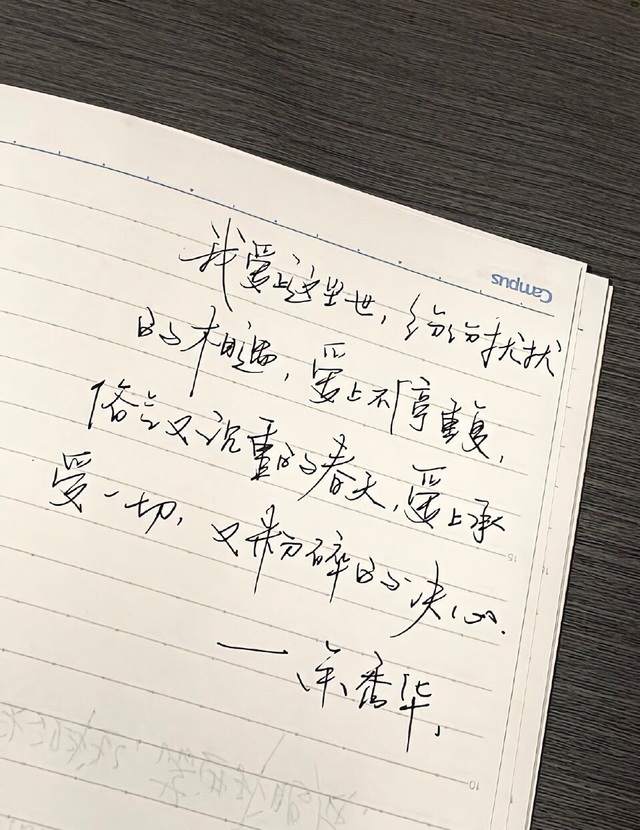 Campus
我爱上这尘世，纷纷扰扰
的相遇，爱上不停重复，
俗言又沉重的春天，爱上承
受一切，又粉碎的决心．
——余秀华．
15
10